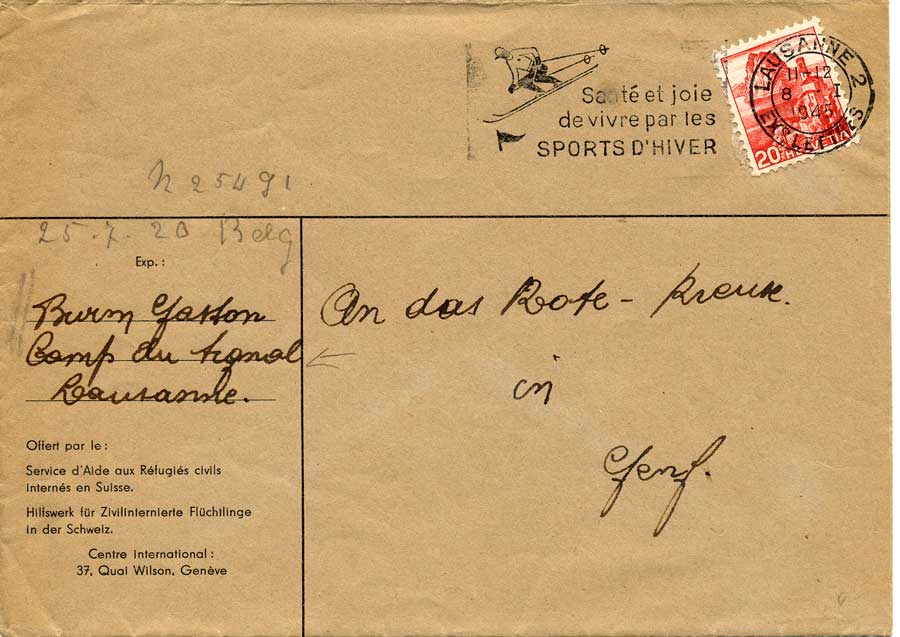 Santé et joie
de vivre par les
SPORTS D'HIVER
LAUSANNE 2
11-12
8 - I
1945
EXP. LETTRES
20 HELVETIA
N 25491
25.7.20 Belg
Exp.:
Burm Gaston
Camp du Signal
Lausanne.
An das Rote-Kreuz.
in
Genf.
Offert par le:
Service d'Aide aux Réfugiés civils
internés en Suisse.
Hilfswerk für Zivilinternierte Flüchtlinge
in der Schweiz.
Centre international:
37, Quai Wilson, Genève